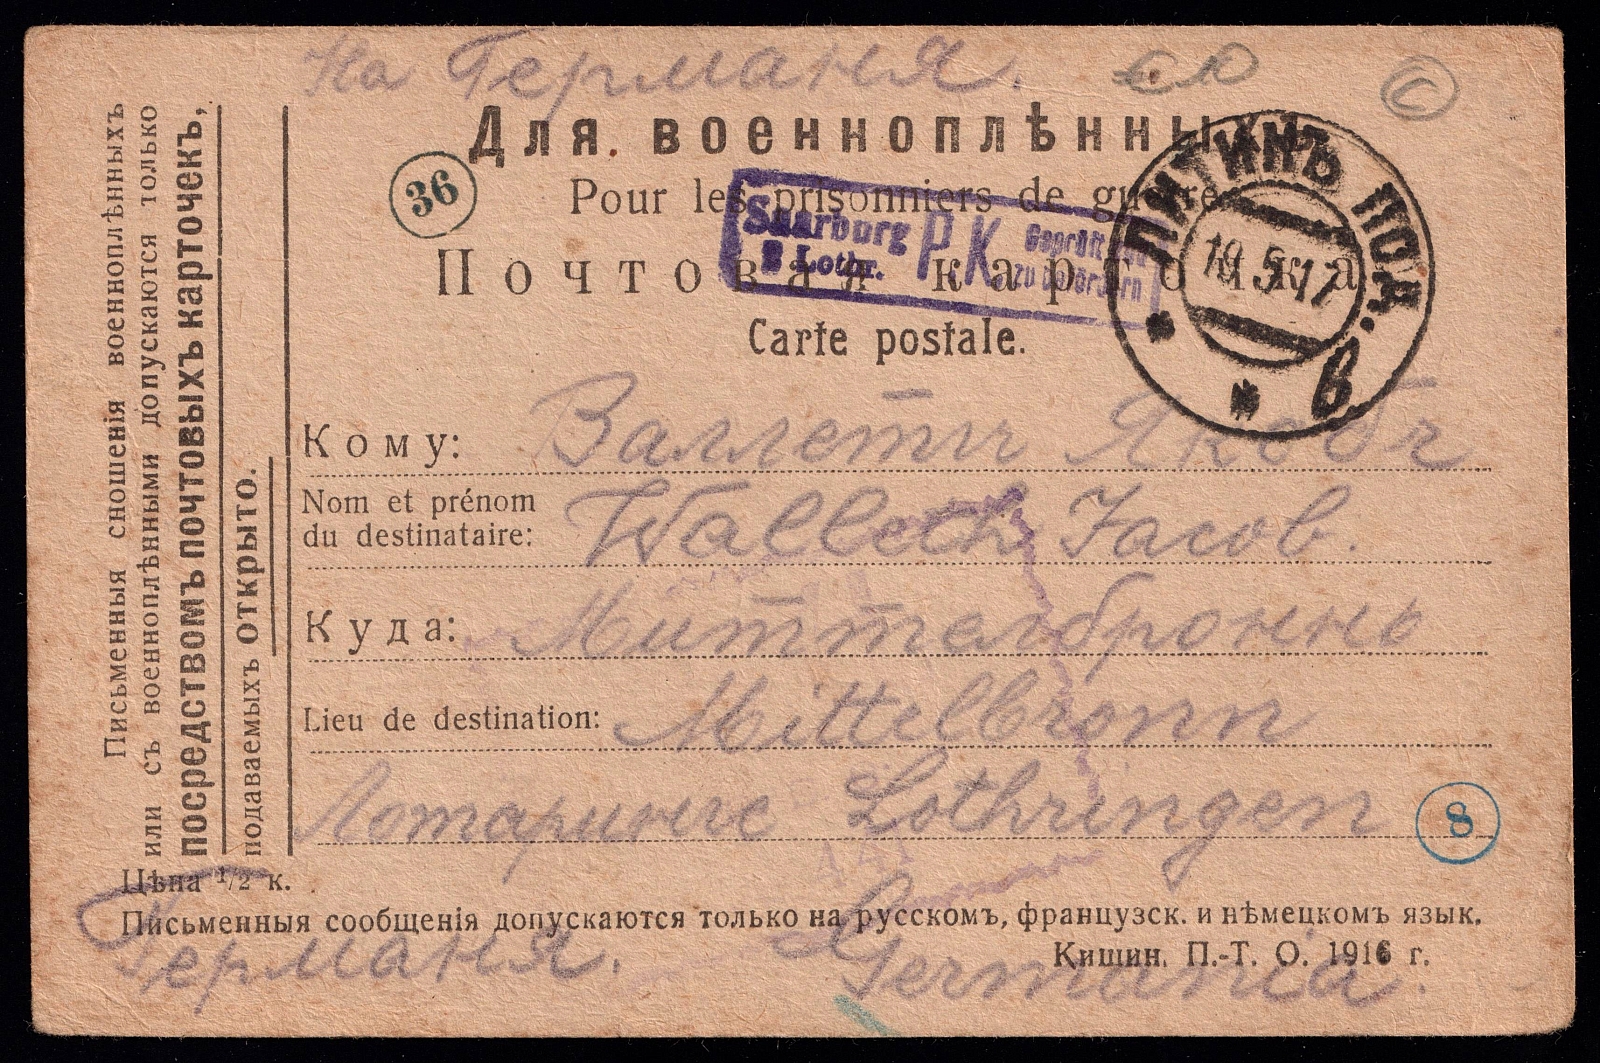 На Германия.
Для военноплѣнныхъ
36
Pour les prisonniers de guerre
Saarburg P.K. Geprüft und
Lothr. zu befördern
ЛИТИНЪ ПОД.
19 5 17
в
Почтовая карточка
Carte postale.
Кому: Валлетч Якобъ
Nom et prénom
du destinataire: Walleth Jacob.
Куда: Миттелброннъ
Lieu de destination: Mittelbronn
Лотарингіе Lothringen
8
Цѣна 1/2 к.
Письменныя сообщенія допускаются только на русскомъ, французск. и нѣмецкомъ язык.
Германия. Germania.
Кишин. П.-Т. О. 1916 г.
Письменныя сношенія военноплѣнныхъ
или съ военноплѣнными допускаются только
посредствомъ почтовыхъ карточекъ,
подаваемыхъ открыто.